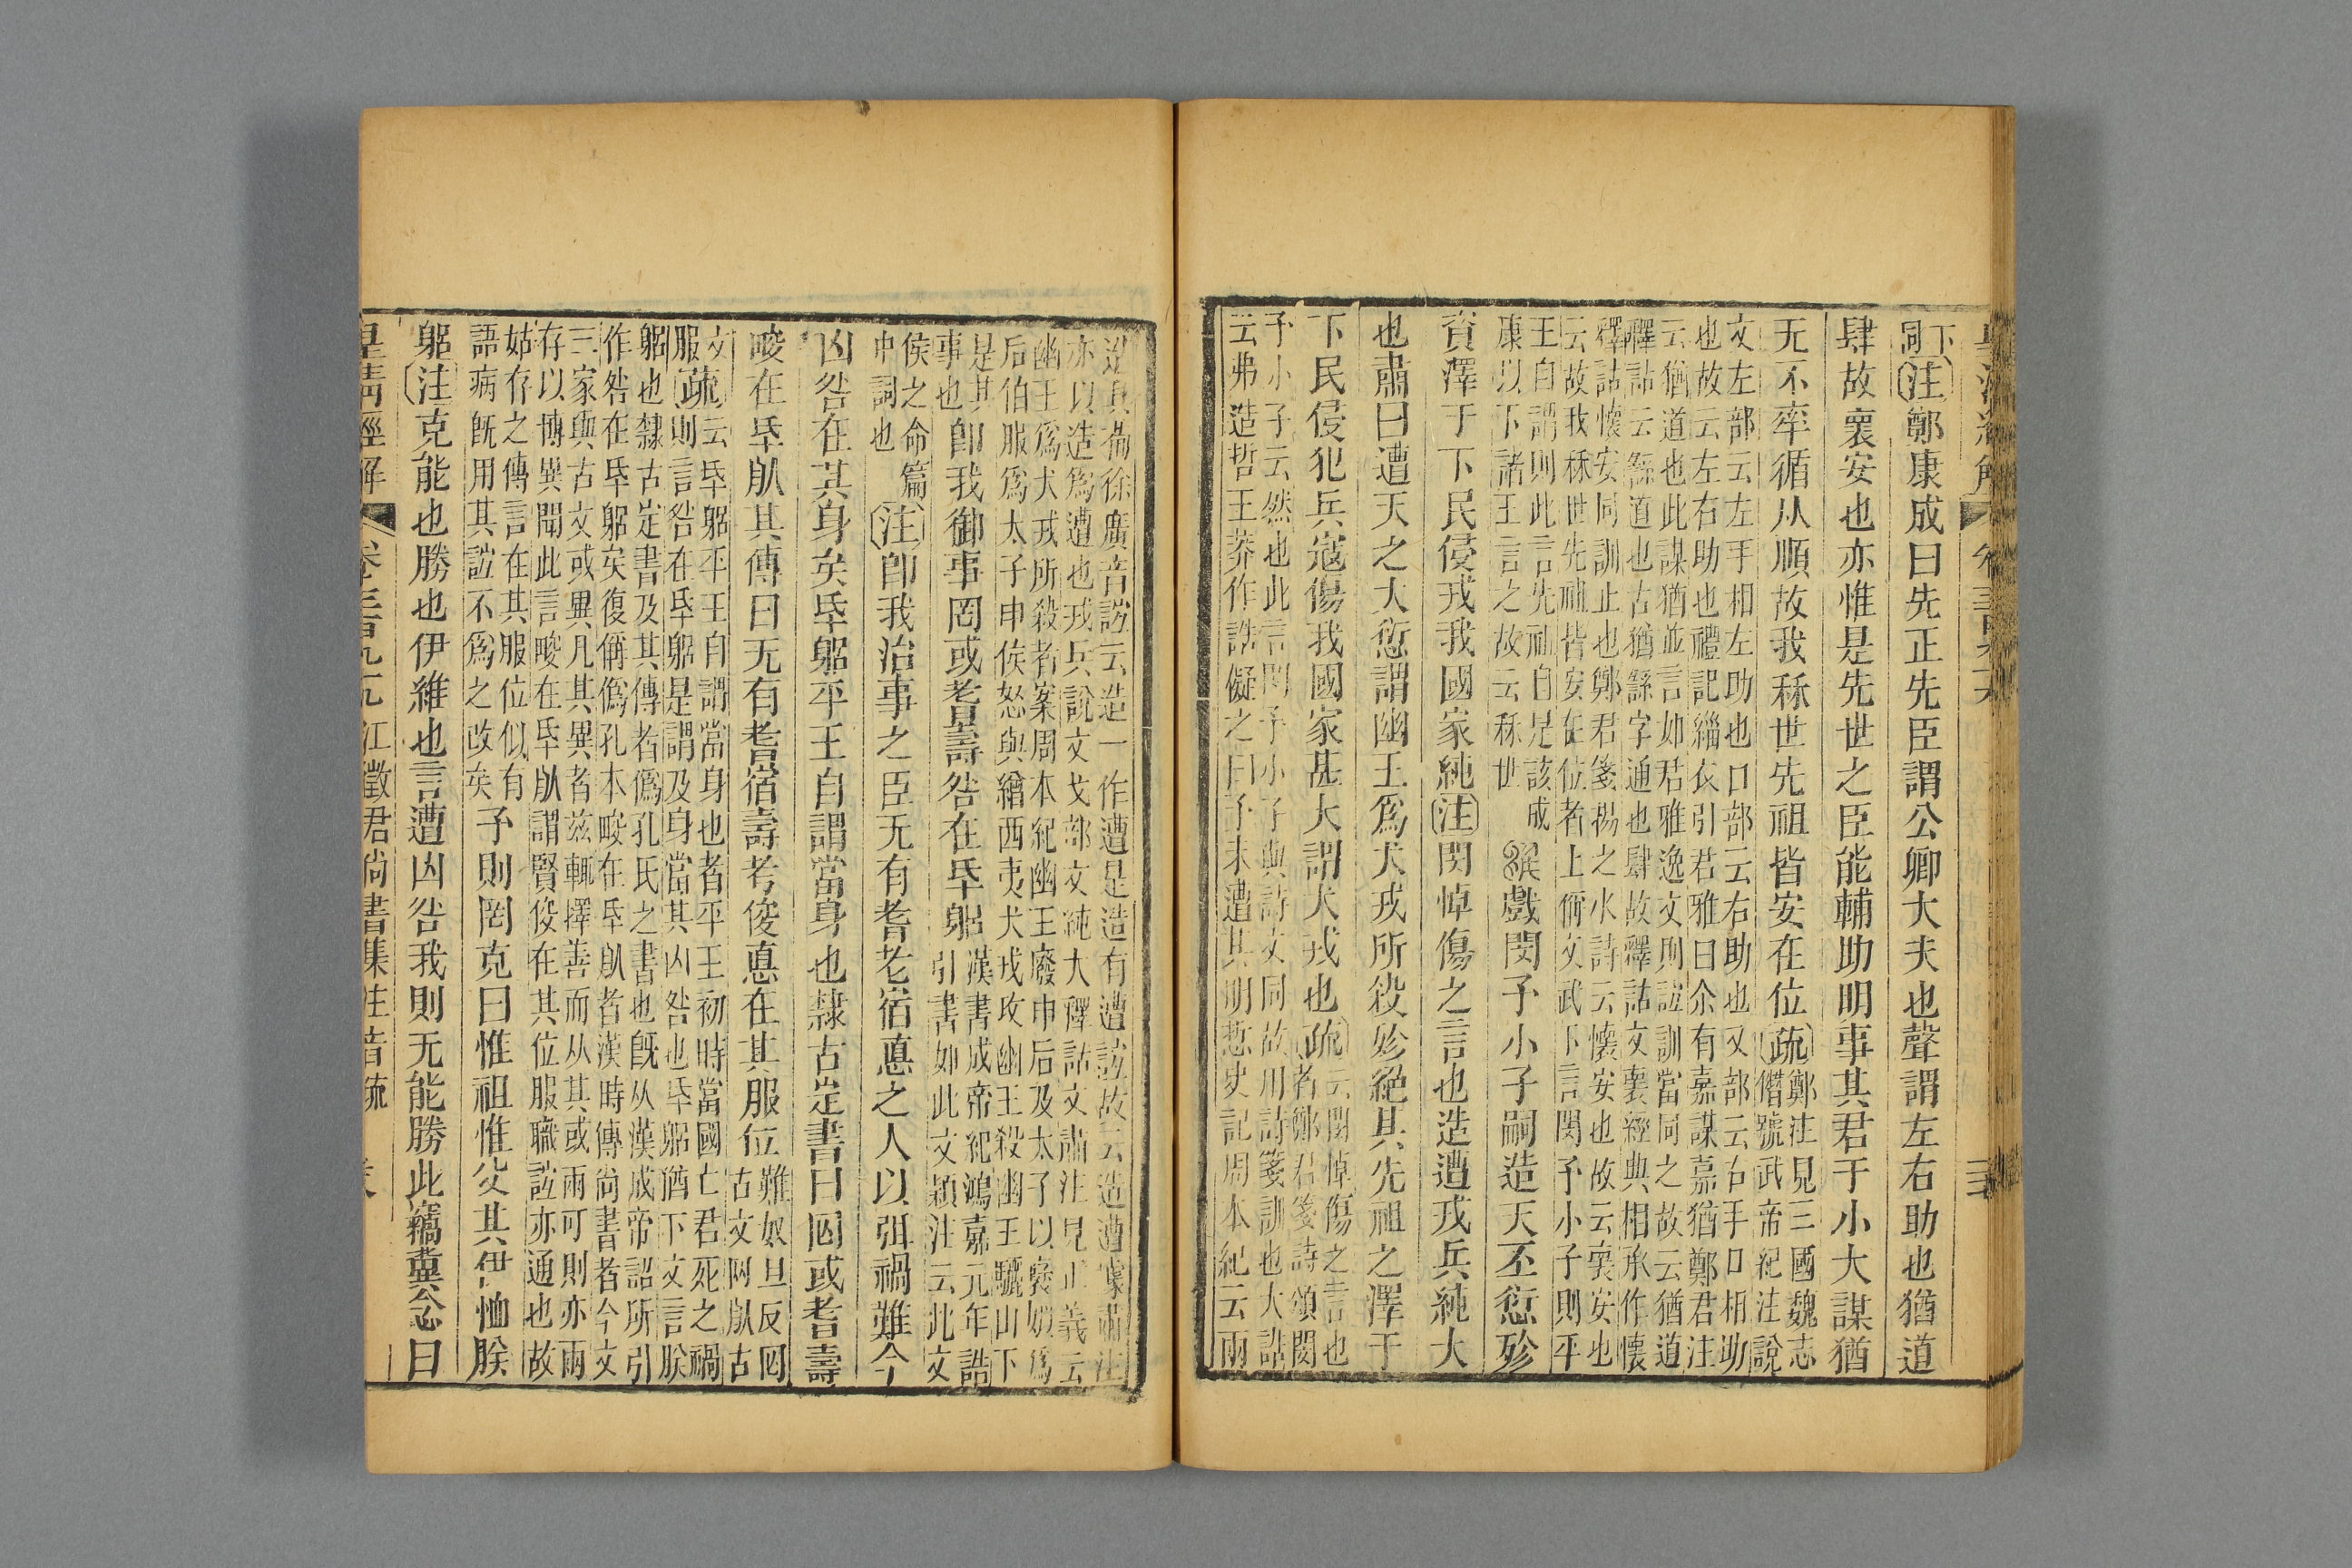 下同
注鄭康成曰先正先臣謂公卿大夫也聲謂左右助也猶道
肆故襄安也亦惟是先世之臣能輔助明事其君于小大謀猶
无不率循从順故我烁世先祖皆安在位疏鄭注見三國魏志
僭號武帝紀注說
文左部云左手相左助也口部云右助也又部云右手口相助
也故云左右助也禮記緇衣引君雅曰尒有嘉謀嘉猶鄭君注
云猶道也此謀猶並言如君雅逸文則誼訓當同之故云猶道
釋詁云繇道也古猶繇字通也肆故釋詁文襄經典相承作懷
釋詁懷安同訓止也鄭君箋揚之水詩云懷安也故云襄安也
云故我烁世先祖皆安在位者上偁文武下言閔予小子則平
王自謂則此言先祖自是該成
康以下諸王言之故云烁世
戲閔予小子嗣造天丕愆殄
資澤于下民侵戎我國家純注閔悼傷之言也造遭戎兵純大
也肅曰遭天之大愆謂幽王爲犬戎所殺殄絕其先祖之澤于
下民侵犯兵寇傷我國家甚大謂犬戎也疏云閔悼傷之言也
者鄭君箋詩頌閔
予小子云然也此言閔予小子與詩文同故用詩箋訓也大誥
云弗造哲王莽作誥儗之曰予未遭其明悊史記周本紀云兩
造具僃徐廣音詁云造一作遭是造有遭誼故云造遭據肅注
亦以造爲遭也戎兵說文戈部文純大釋詁文肅注見正義云
幽王爲犬戎所殺者案周本紀幽王廢申后及太子以襃姒爲
后伯服爲太子申侯怒與繒西夷犬戎攻幽王殺幽王驪山下
是其
事也
卽我御事罔或耆壽咎在氒躳漢書成帝紀鴻嘉元年詔
引書如此文穎注云此文
侯之命篇
中詞也
注卽我治事之臣无有耆老宿悳之人以弭禍難今
凶咎在其身矣氒躳平王自謂當身也隸古定書曰罔或耆壽
畯在氒㕜其傳曰无有耆宿壽考俊悳在其服位難奴旦反罔
古文网㕜古
文服疏云氒躳平王自謂當身也者平王初時當國亡君死之禍
則言咎在氒躳是謂及身當其凶咎也氒躳猶下文言朕
躳也隸古定書及其傳者僞孔氏之書也旣从漢成帝詔所引
作咎在氒躳矣復偁僞孔本畯在氒㕜者漢時傳尙書者今文
三家與古文或異凡其異者茲輒擇善而从其或兩可則亦兩
存以博異聞此言畯在氒㕜謂賢俊在其位服職誼亦通也故
姑存之傳言在其服位似有
語病旣用其誼不爲之改矣
予則罔克曰惟祖惟父其伊恤朕
躳注克能也勝也伊維也言遭凶咎我則无能勝此竊冀念曰
皇淸經解 卷三百九十六 江徵君尙書集注音疏